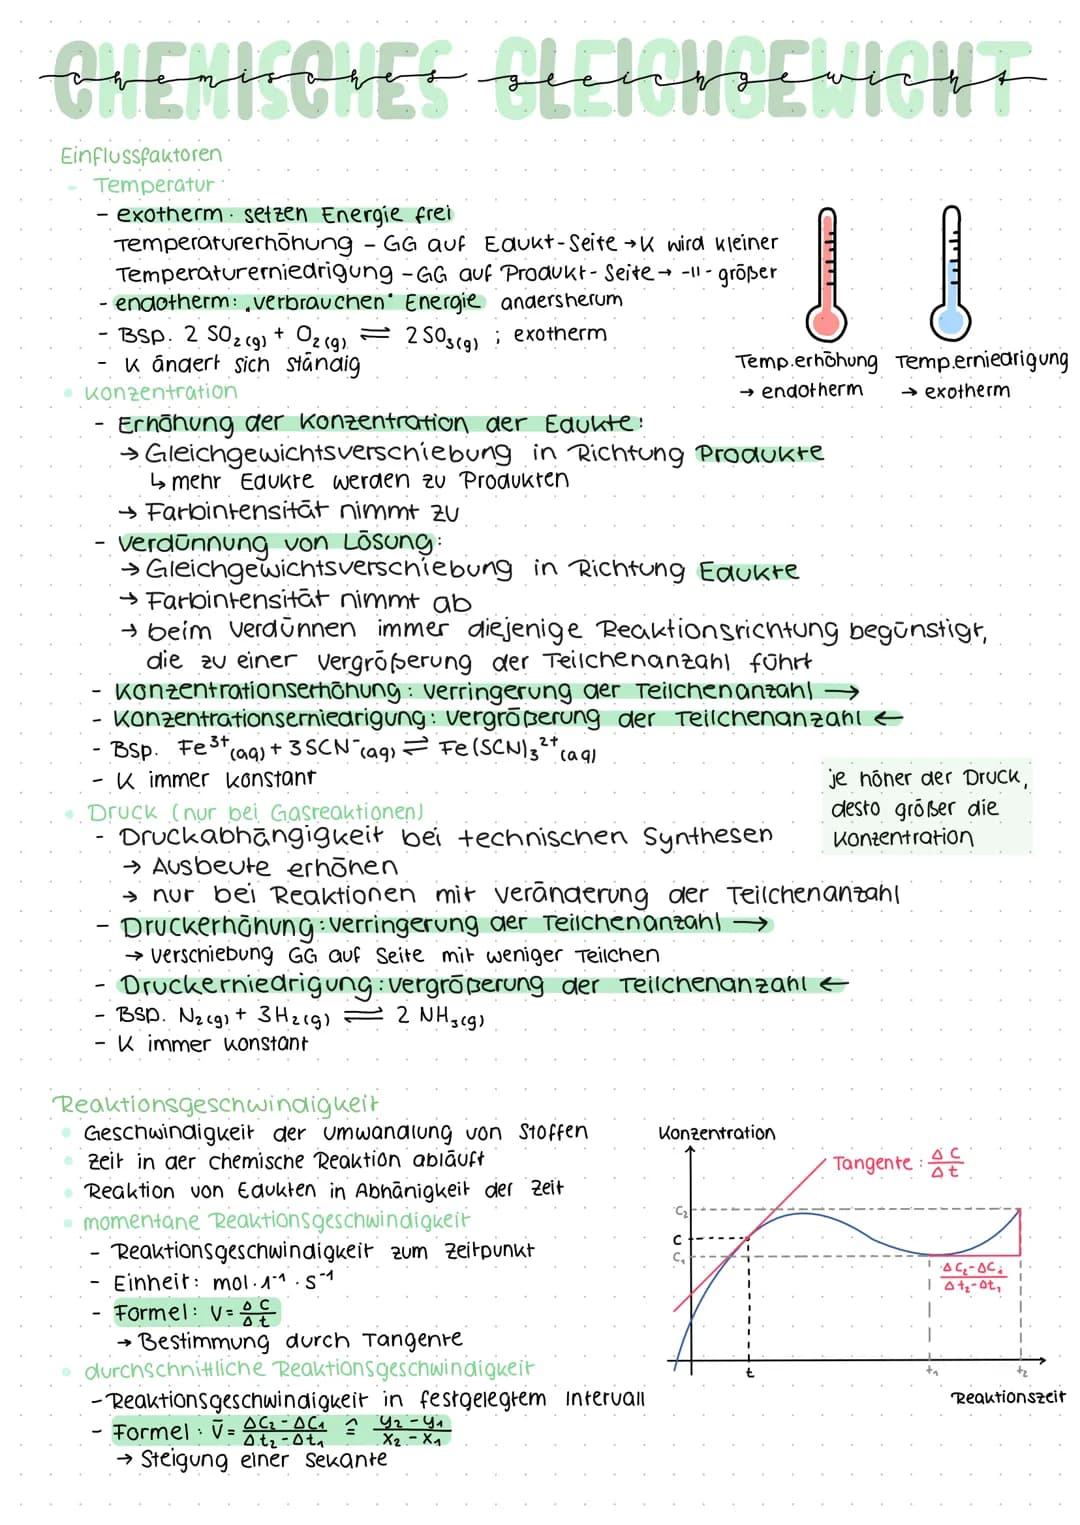 CHEMISCHES GLEICHGEWICHT
chemisches gleichgewicht
Einflussfaktoren
• Temperatur
- exotherm: setzen Energie frei
Temperaturerhöhung - GG auf Edukt-Seite → K wird kleiner
Temperaturerniedrigung - GG auf Produkt-Seite → -11- größer
- endotherm: „verbrauchen" Energie andersherum
- Bsp. 2 SO₂(g) + O₂(g) ⇌ 2 SO₃(g) ; exotherm
- K ändert sich ständig
Temp.erhöhung
→ endotherm
Temp.erniedrigung
→ exotherm
• Konzentration
- Erhöhung der Konzentration der Edukte:
→ Gleichgewichtsverschiebung in Richtung Produkte
↳ mehr Edukte werden zu Produkten
→ Farbintensität nimmt zu
- Verdünnung von Lösung:
→ Gleichgewichtsverschiebung in Richtung Edukte
→ Farbintensität nimmt ab
→ beim Verdünnen immer diejenige Reaktionsrichtung begünstigt,
die zu einer Vergrößerung der Teilchenanzahl führt
- Konzentrationserhöhung: Verringerung der Teilchenanzahl →
- Konzentrationserniedrigung: Vergrößerung der Teilchenanzahl ←
- Bsp. Fe³⁺(aq) + 3 SCN⁻(aq) ⇌ Fe(SCN)₃²⁺(aq)
- K immer konstant
je höher der Druck,
desto größer die
Konzentration
• Druck (nur bei Gasreaktionen)
- Druckabhängigkeit bei technischen Synthesen
→ Ausbeute erhöhen
→ nur bei Reaktionen mit Veränderung der Teilchenanzahl
- Druckerhöhung: Verringerung der Teilchenanzahl →
→ Verschiebung GG auf Seite mit weniger Teilchen
- Druckerniedrigung: Vergrößerung der Teilchenanzahl ←
- Bsp. N₂(g) + 3 H₂(g) ⇌ 2 NH₃(g)
- K immer konstant
Reaktionsgeschwindigkeit
• Geschwindigkeit der Umwandlung von Stoffen
• Zeit in der chemische Reaktion abläuft
• Reaktion von Edukten in Abhänigkeit der Zeit
• momentane Reaktionsgeschwindigkeit
- Reaktionsgeschwindigkeit zum Zeitpunkt
- Einheit: mol · l⁻¹ · s⁻¹
- Formel: V = Δc/Δt
→ Bestimmung durch Tangente
• durchschnittliche Reaktionsgeschwindigkeit
- Reaktionsgeschwindigkeit in festgelegtem Intervall
- Formel: V̄ = ΔC₂-ΔC₁/Δt₂-Δt₁ ≙ y₂-y₁/x₂-x₁
→ Steigung einer Sekante
Konzentration
Tangente: Δc/Δt
C₂
C
C₁
ΔC₂-ΔC₁/Δt₂-Δt₁
t
t₁
t₂
Reaktionszeit